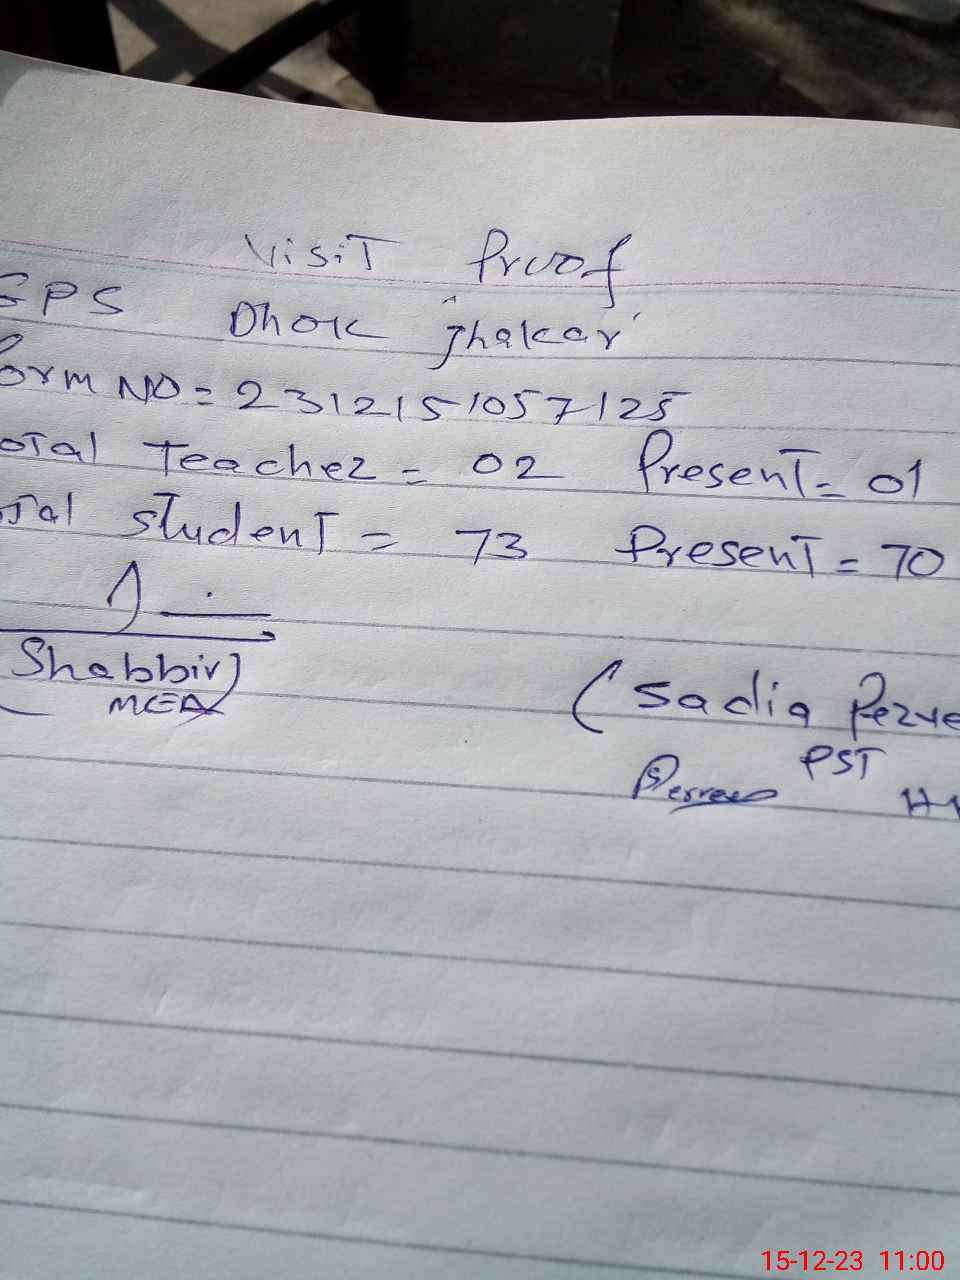 Visit Proof
GPS Dhok Jhakar
Form NO = 2312151057125
Total Teacher = 02 Present = 01
Total Student = 73 Present = 70
Shabbir)
MEA
(Sadia Perve
PST
15-12-23 11:00